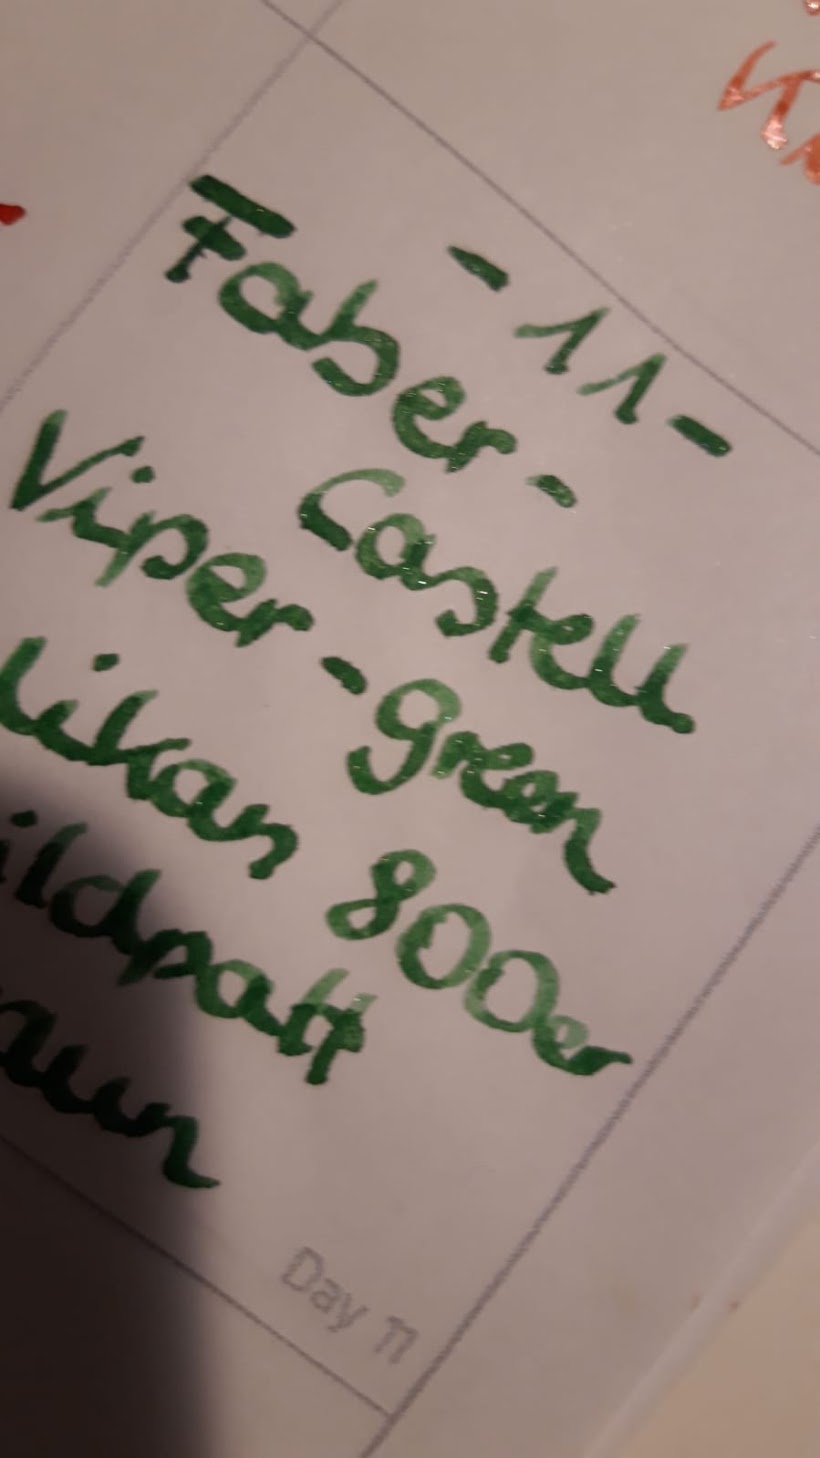 - 11 -
Faber-
Castell
Viper-green
likan 800er
ildpatt
aun
Day 11